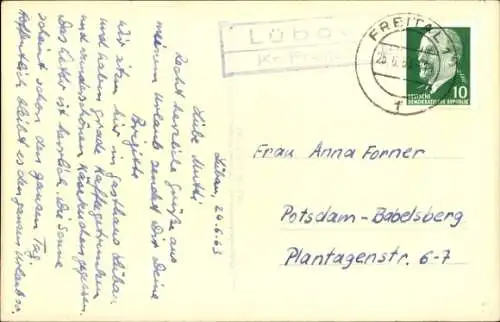 Lübau, 24.6.63
Liebe Mutti!
Recht herzliche Grüße aus
meinem Urlaub sendet Dir Deine
Brigitte
Wir sitzen hier im Gasthaus Lübau
und haben grade Kaffeegetrunken
und wunderschönen Käsekuchen gegessen.
Das Wetter ist herrlich. Die Sonne
scheint schon den ganzen Tag.
Hoffentlich bleibt es den ganzen Urlaub so.
Lübau
FREITAL 1
10
DEUTSCHE
DEMOKRATISCHE REPUBLIK
Frau Anna Forner
Potsdam-Babelsberg
Plantagenstr. 6-7